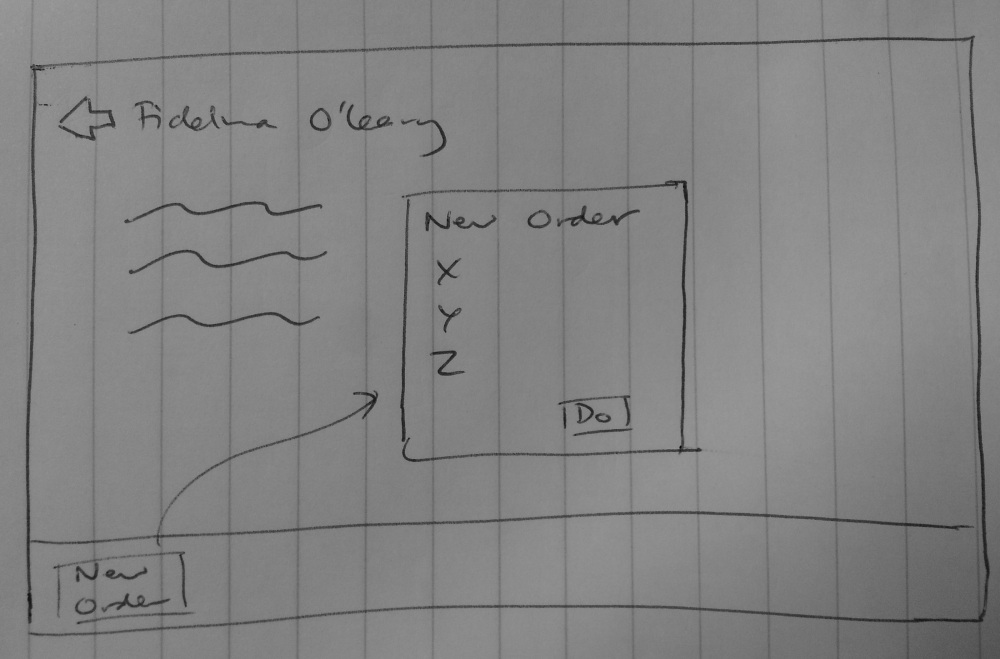 Fidelma O'Leary
New Order
X
Y
Z
Do
New
Order